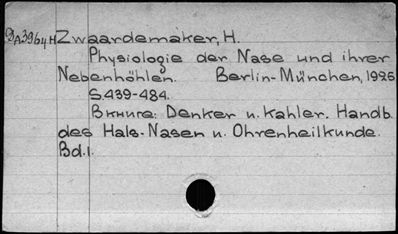 DA3964H Zwaardemaker, H.
Physiologie der Nase und ihrer
Nebenhöhlen. Berlin-München, 1926
S. 439-484.
Вкниге: Denker u. Kahler. Handb.
des Hals-Nasen u. Ohrenheilkunde.
Bd. I.